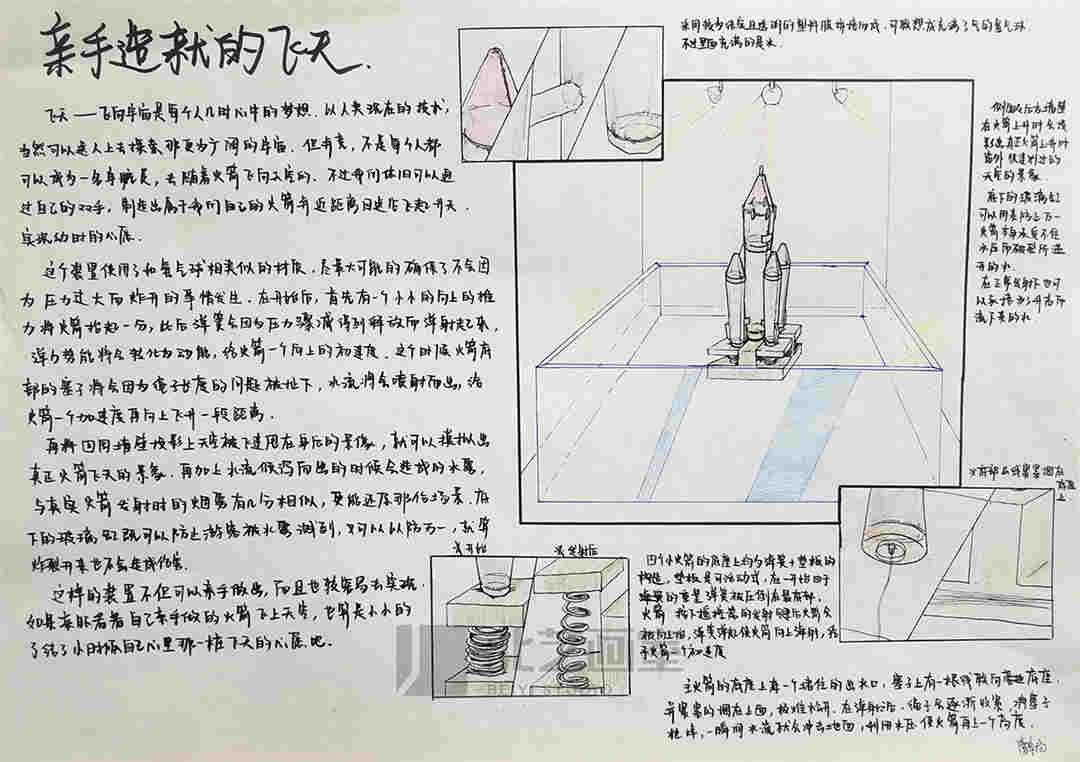 亲手造就的飞天.
飞天——飞向宇宙是每个人儿时心中的梦想.以人类现在的技术,
当然可以送人上去探索那更为广阔的宇宙.但毕竟,不是每个人都
可以成为一名宇航员,去随着火箭飞向太空的.不过我们依旧可以通
过自己的双手,制造出属于我们自己的火箭并近距离目送它飞起升天.
实现幼时的心愿.
这个装置使用了和氢气球相类似的材质,尽最大可能的确保了不会因
为压力过大而炸开的事情发生.在开始后,首先有一个小小的向上的推
力将火箭抬起一分,此后弹簧会因为压力骤减得到释放而弹射起来,
弹力势能将会转化为动能,给火箭一个向上的初速度.这个时候火箭底
部的塞子将会因为绳子长度的问题被扯下,水流将会喷射而出,给
火箭一个加速度再向上飞升一段距离.
再将四周墙壁投影上天空被飞速甩在身后的景像,就可以模拟出
真正火箭飞天的景象.再加上水流倾泻而出的时候会造成的水雾,
与真实火箭发射时的烟雾有几分相似,更能还原那份场景.底
下的玻璃缸既可以防止游客被水雾溅到,又可以以防万一,就算
炸裂开来也不会造成伤害.
这样的装置不但可以亲手做出,而且也较容易去实现.
如果亲眼看着自己亲手做的火箭飞上天空,也算是小小的
了结了小时候自己心里那一桩飞天的心愿吧.
采用较为保险且透明的塑料膜
可联想成充满了气的氢气球
不过里面充满的是水.
在火箭上升时会投
影出真正火箭上升时
窗外快速划过的
天空的景象.
底下的玻璃缸
可以用来防止万一
火箭
水压而破裂所造
开的水.
在正常发射下也可
以
流下来的水
发射后
四个小火箭的底座上均为弹簧+垫板的
构造,垫板是可活动式,在一开始由于
的重量弹簧被压倒在最底部.
火箭
被向上抬,弹簧弹起使火箭向上弹射,给
予火箭一个初速度
主火箭的底座上有一个堵住的出水口,塞子上有一根线联向底座.
并紧紧的固在上面,极难松开.在弹射后.绳子会逐渐收紧,将塞子
拽掉,一瞬间水流就会冲击地面,利用水压使火箭再上一个高度.
BEYI STUDIO